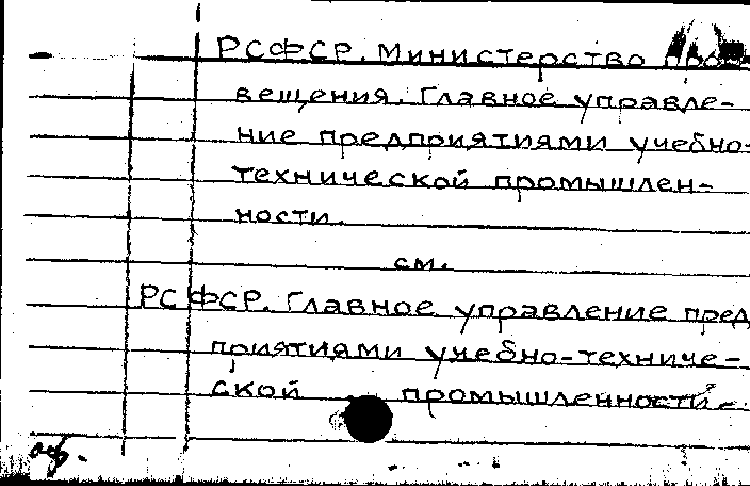 РСФСР. Министерство прос-
вещения. Главное управле-
ние предприятиями учебно-
технической промышлен-
ности.
см.
РСФСР. Главное управление пред
приятиями учебно-техниче-
ской промышленности.